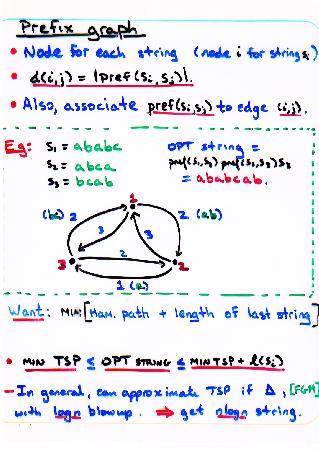 Prefix graph
• Node for each string (node i for string sᵢ)
• d(i,j) = |pref(sᵢ, sⱼ)|.
• Also, associate pref(sᵢ,sⱼ) to edge (i,j).
Eg: s₁ = ababc
s₂ = abca
s₃ = bcab
OPT string =
pref(s₁,s₂) pref(s₂,s₃) s₃
= ababcab.
1
(bc) 2
3
3
2 (ab)
3
2
2
1 (a)
Want: MIN: [HAM. path + length of last string]
• MIN TSP ≤ OPT STRING ≤ MIN TSP + l(sᵢ)
– In general, can approximate TSP if Δ, [FGM]
with logn blowup. ⇒ get nlogn string.